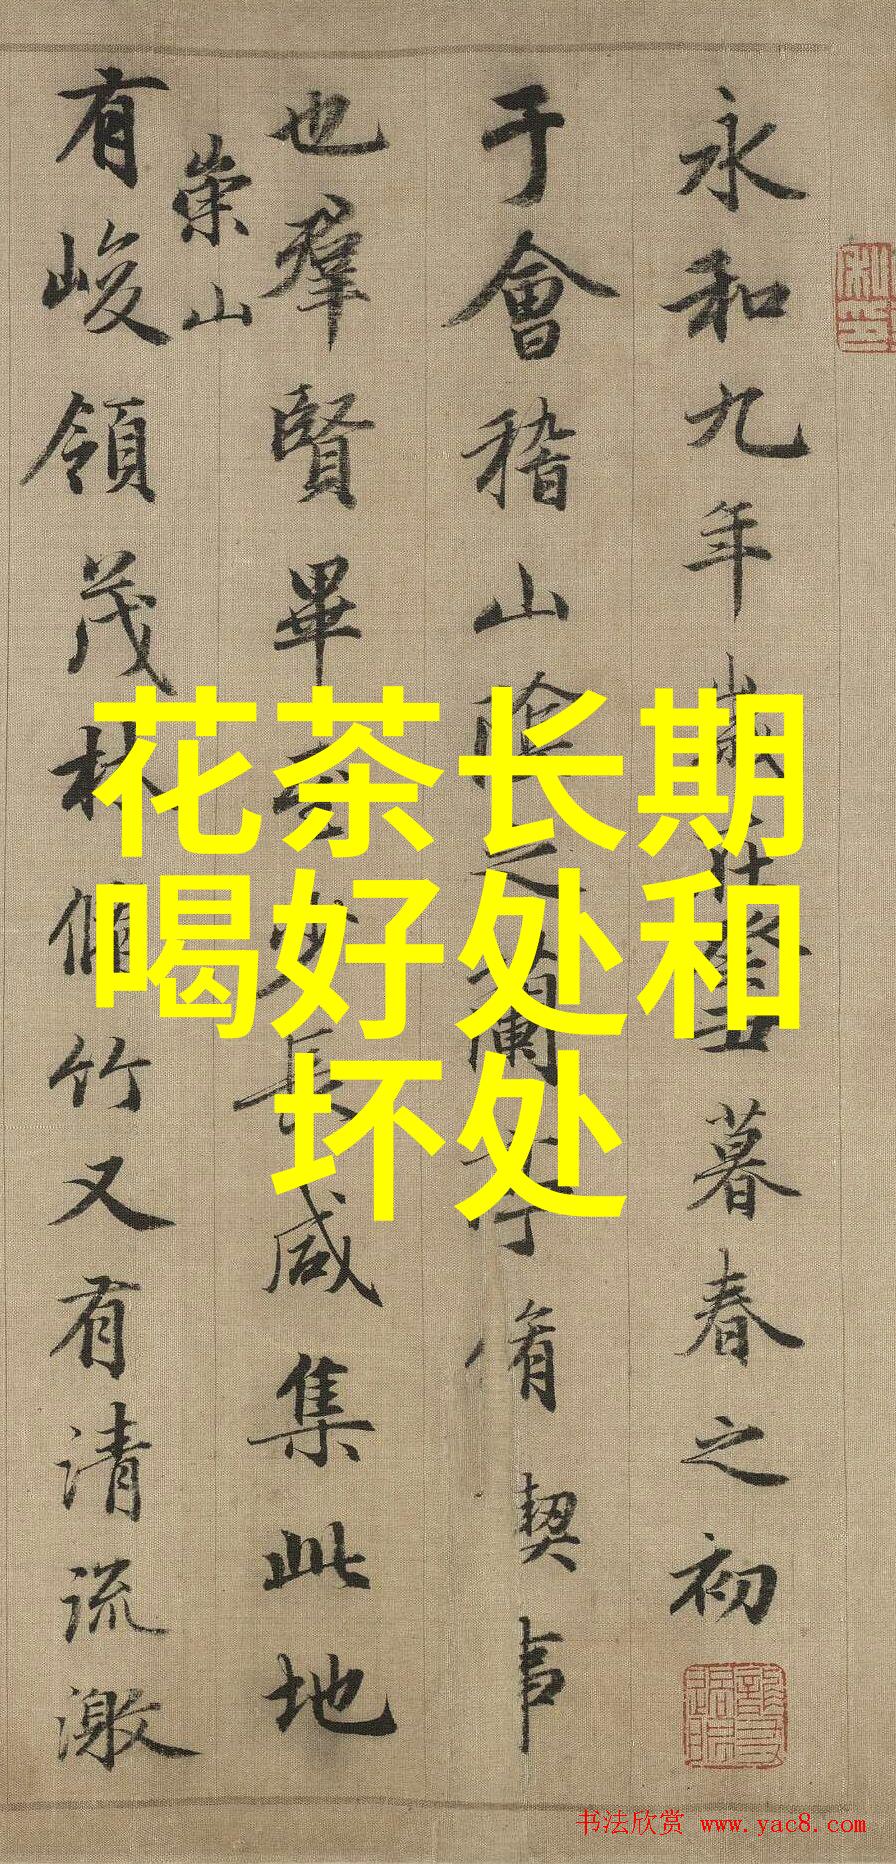 永和九年歲在癸丑暮春之初
于會稽山陰之蘭亭脩契事
也羣賢畢至少長咸集此地
崇山
有峻領茂林脩竹又有清流激
花茶长期
喝好处和
坏处
书法欣赏 www.yac8.com